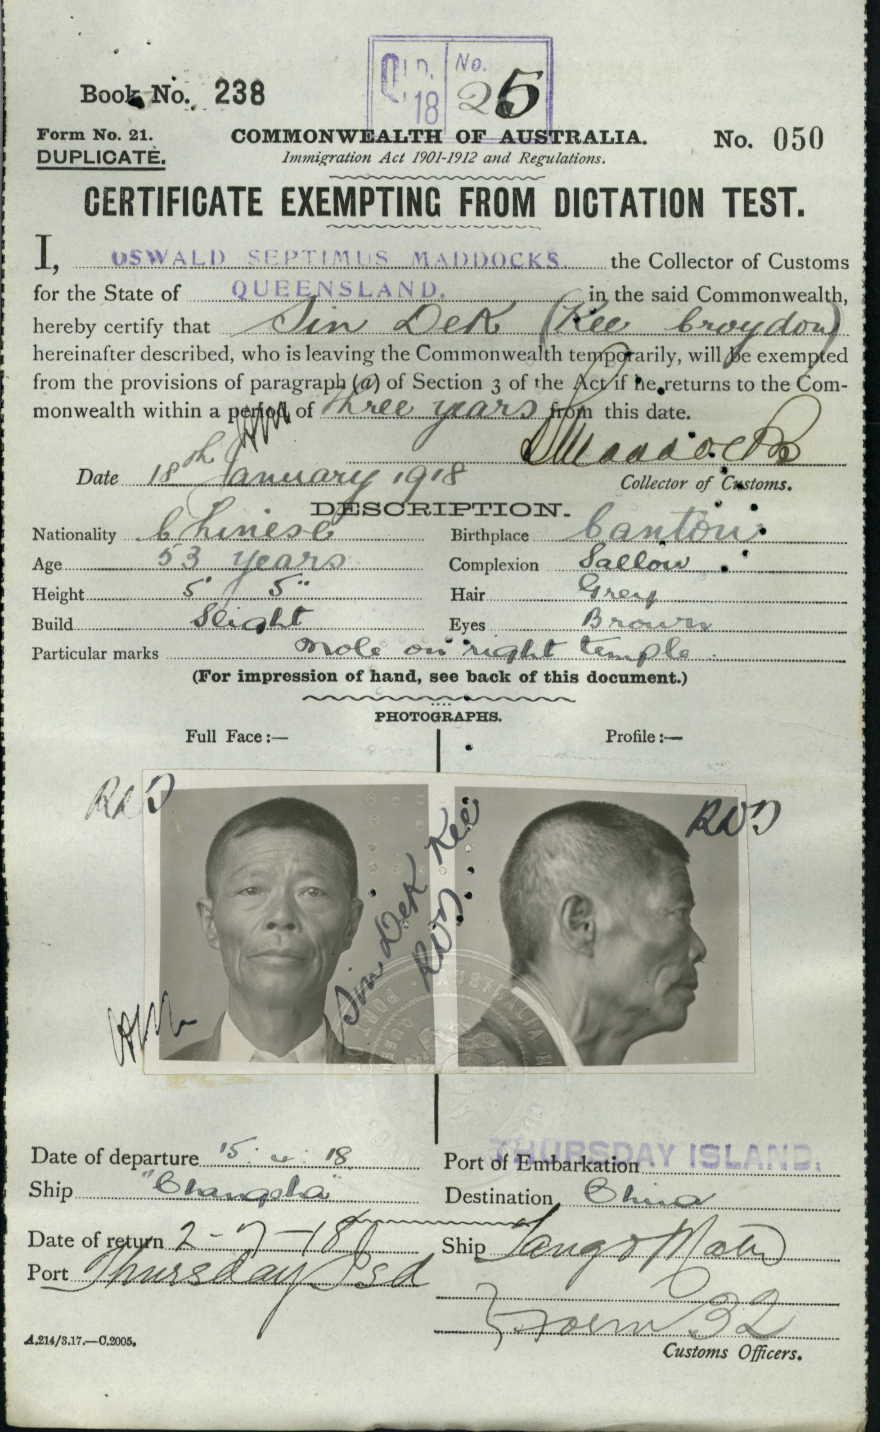 QLD. No.
18 25
Book No. 238
Form No. 21. COMMONWEALTH OF AUSTRALIA. No. 050
DUPLICATE. Immigration Act 1901-1912 and Regulations.
CERTIFICATE EXEMPTING FROM DICTATION TEST.
I, OSWALD SEPTIMUS MADDOCKS. the Collector of Customs
for the State of QUEENSLAND. in the said Commonwealth,
hereby certify that Sin Dek (Kee Croydon)
hereinafter described, who is leaving the Commonwealth temporarily, will be exempted
from the provisions of paragraph (a) of Section 3 of the Act if he returns to the Com-
monwealth within a period of three years from this date.
Maddocks
Date 18th January 1918 Collector of Customs.
DESCRIPTION.
Nationality Chinese Birthplace Canton
Age 53 years Complexion Sallow
Height 5' 5" Hair Grey
Build Slight Eyes Brown
Particular marks mole on right temple.
(For impression of hand, see back of this document.)
PHOTOGRAPHS.
Full Face:— Profile:—
Sin Dek Kee
Date of departure 15. 18 Port of Embarkation THURSDAY ISLAND.
Ship "Changsha" Destination China
Date of return 2-7-18 Ship Tango Maru
Port Thursday Isd
Form 32
A.214/3.17.—C.2005. Customs Officers.